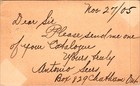 Nov 27/05
Dear Sir
Please send me one
of your Catalogue
Yours truly
Antonio Seers
Box 129 Chatham Ont